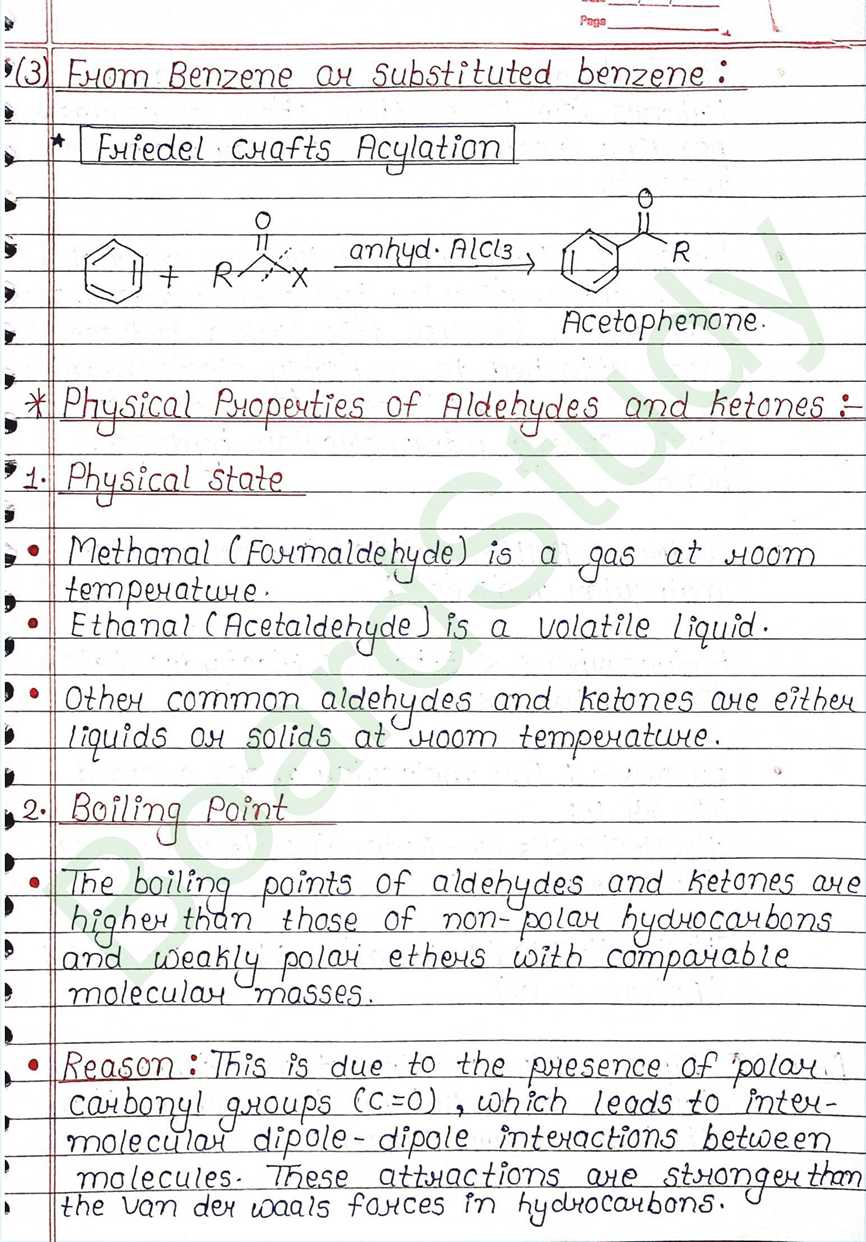 Page
(3) From Benzene or substituted benzene :
* Friedel crafts Acylation
O
O
+ R X anhyd. AlCl3 R
Acetophenone.
* Physical Properties of Aldehydes and ketones :-
1. Physical state
• Methanal (Formaldehyde) is a gas at room
temperature.
• Ethanal (Acetaldehyde) is a volatile liquid.
• Other common aldehydes and ketones are either
liquids or solids at room temperature.
2. Boiling Point
• The boiling points of aldehydes and ketones are
higher than those of non-polar hydrocarbons
and weakly polar ethers with comparable
molecular masses.
• Reason : This is due to the presence of polar
carbonyl groups (C=O), which leads to inter-
molecular dipole-dipole interactions between
molecules. These attractions are stronger than
the van der waals forces in hydrocarbons.
BoardStudy